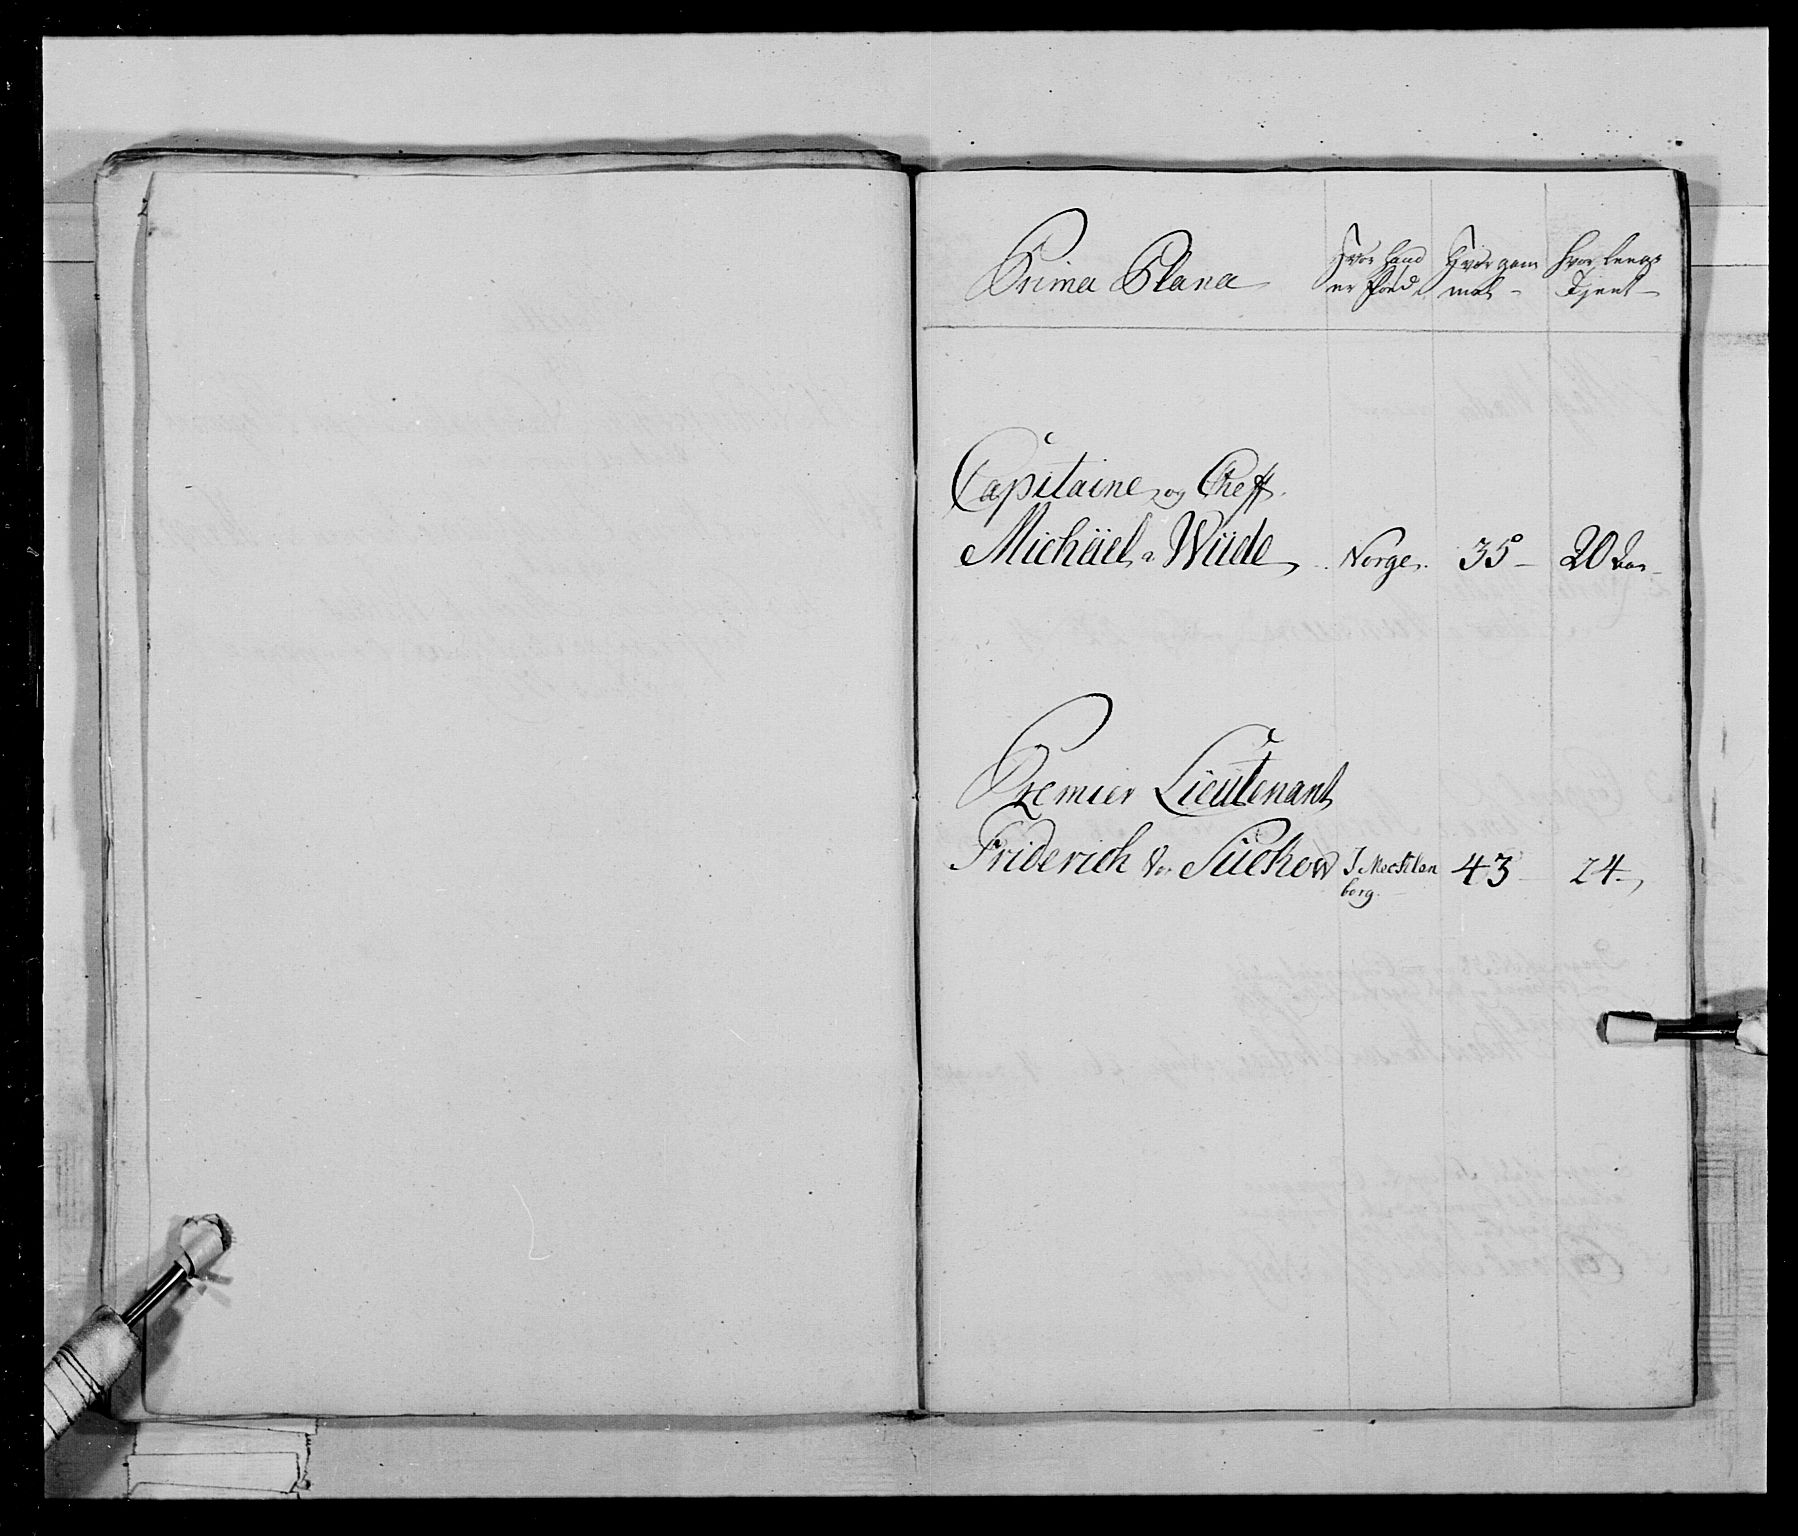 Prima Plana
Hvor hand er fød
Hvor gammel
Hvor længe Tjent
Capitaine og Cheff
Michäel a Wüde Norge 35 20 Aar
Premier Lieutenant
Friderich von Sückow I Mecklenborg 43 24